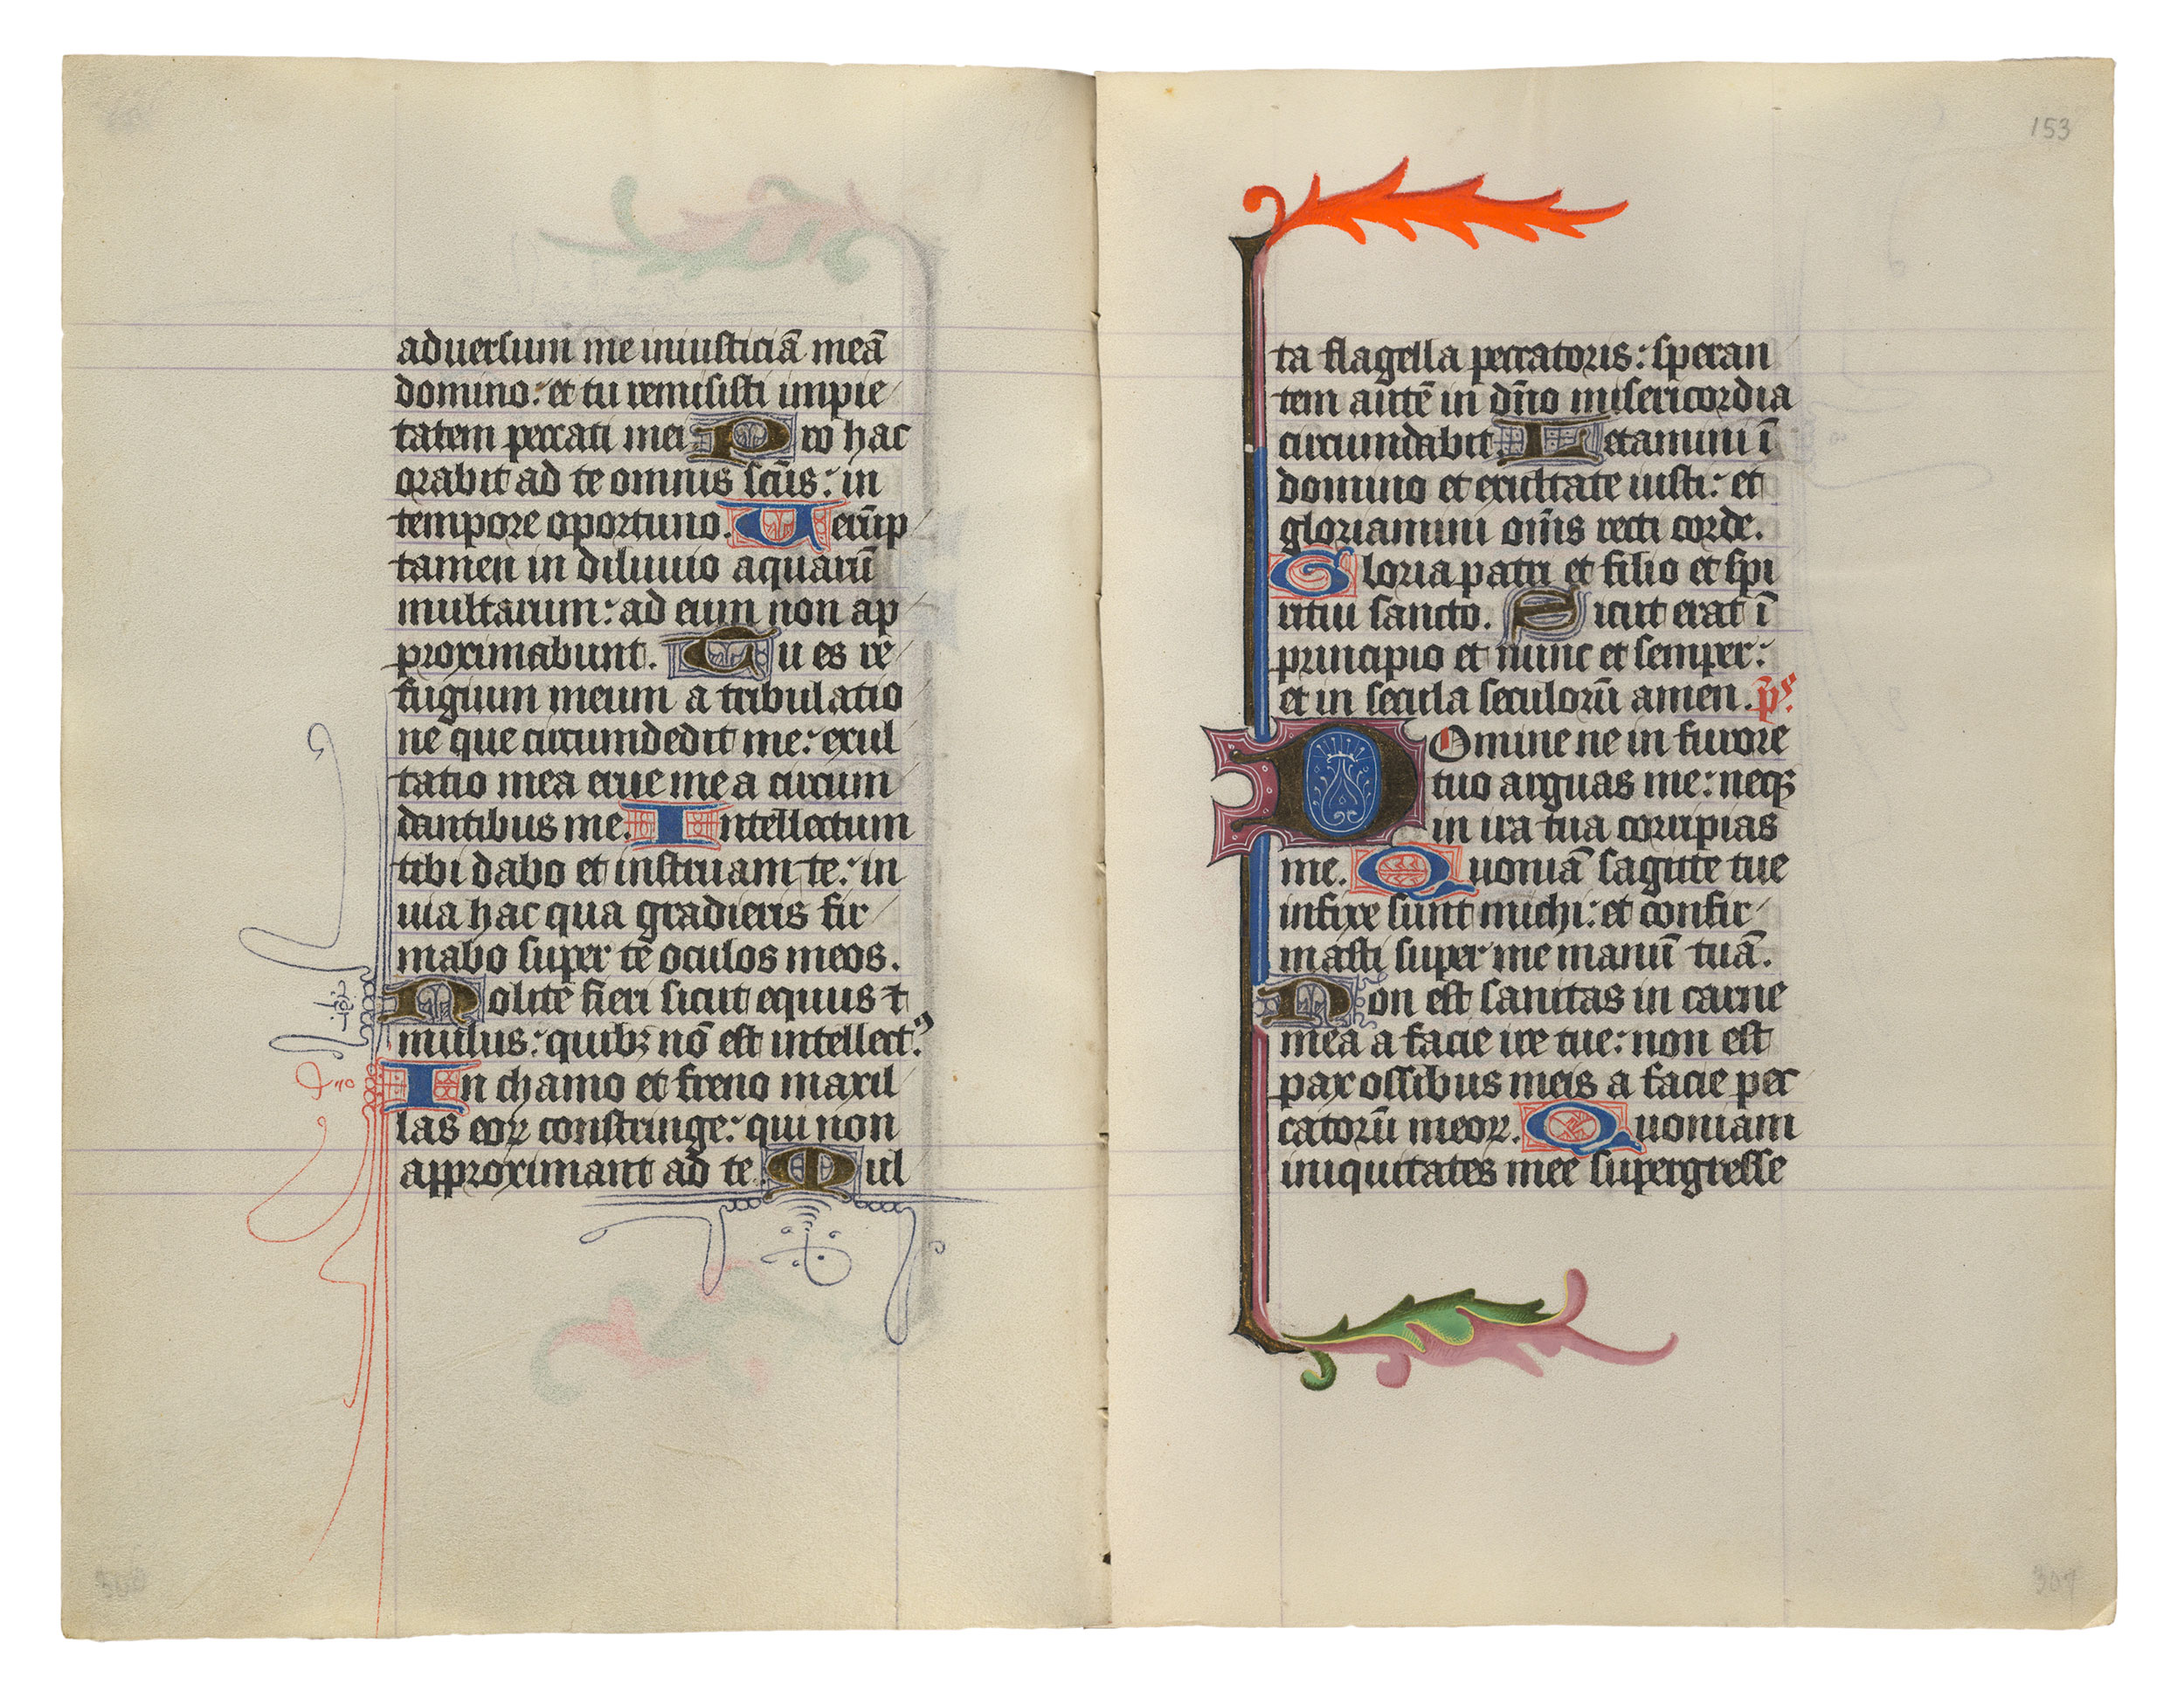 aduersum me iniusticiā meā
domino: et tu remisisti impie
tatem peccati mei Pro hac
orabit ad te omnis scūs: in
tempore oportuno. Uerūp
tamen in diluuio aquarū
multarum: ad eum non ap
proximabunt. Tu es re
fugium meum a tribulatio
ne que circumdedit me: exul
tatio mea erue me a circum
dantibus me. Intellectum
tibi dabo et instruam te: in
uia hac qua gradieris fir
mabo super te oculos meos.
Nolite fieri sicut equus ⁊
mulus: quibꝫ nō est intellectꝰ.
In chamo et freno maxil
las eoꝝ constringe: qui non
approximant ad te. Mul
153
ta flagella peccatoris: speran
tem autē in dño misericordia
circumdabit. Letamini ī
domino et exultate iusti: et
gloriamini om̄s recti corde.
Gloria patri et filio et spi
ritui sancto. Sicut erat ī
principio et nunc et semper:
et in secula seculorū amen. p̄s.
Domine ne in furore
tuo arguas me: neqꝫ
in ira tua corripias
me. Quoniā sagitte tue
infixe sunt michi: et confir
masti super me manū tuā.
Non est sanitas in carne
mea a facie ire tue: non est
pax ossibus meis a facie pec
catorū meoꝝ. Quoniam
iniquitates mee supergresse
307